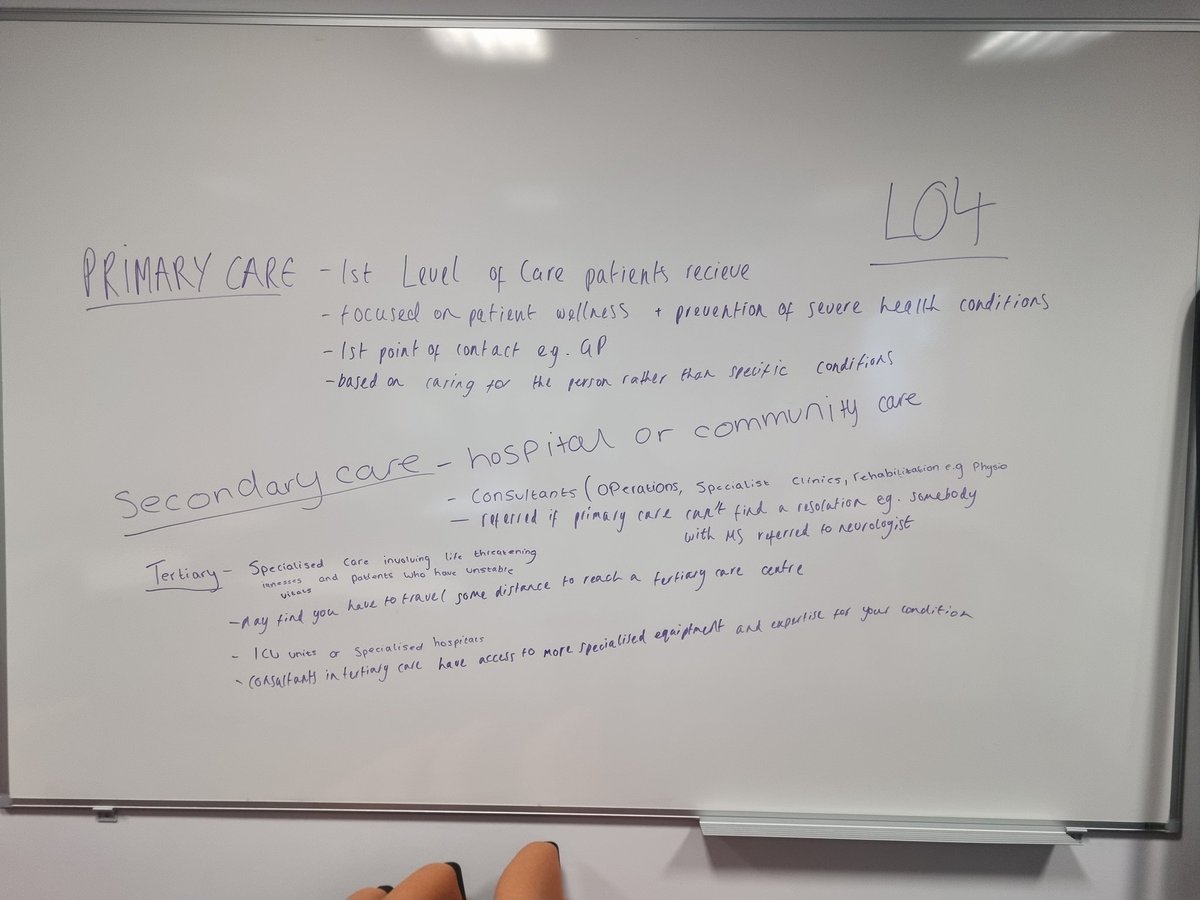 LO4
PRIMARY CARE - 1st Level of Care patients recieve
- focused on patient wellness + prevention of severe health conditions
- 1st point of contact eg. GP
- based on caring for the person rather than specific conditions
Secondary care - hospital or community care
- Consultants (Operations, Specialist Clinics, rehabilitation e.g Physio
- referred if primary care can't find a resolution eg. somebody
with MS referred to neurologist
Tertiary - Specialised Care involving life threatening
illnesses and patients who have unstable
vitals
- May find you have to travel some distance to reach a tertiary care centre
- ICU units or Specialised hospitals
- Consultants in tertiary care have access to more specialised equiptment and expertise for your condition